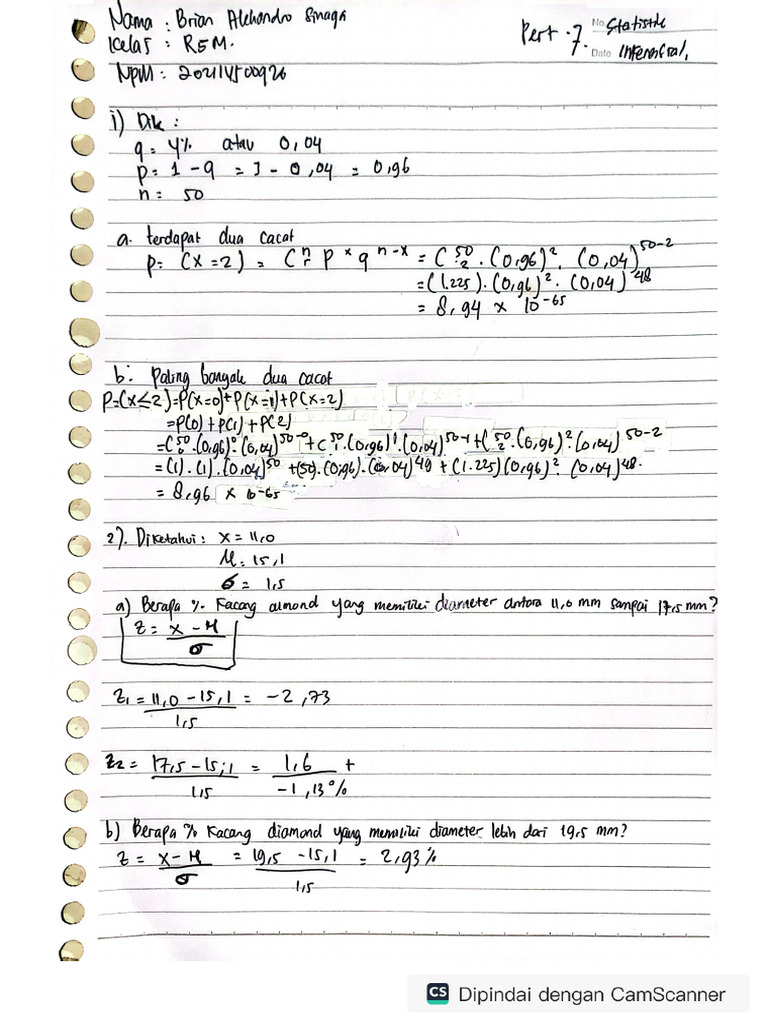 Nama : Brian Alehandro Sinaga
Kelas : REM.
NPM : 202114500926
Pert . 7.
No. Statistik
Date Inferensial,
1) Dik :
q = 4% atau 0,04
p = 1 - q = 1 - 0,04 = 0,96
n = 50
a. terdapat dua cacat
P = (x = 2) = C n r p x q n-x = C 50 2 . (0,96)², (0,04) 50-2
= (1.225) . (0,96)² . (0,04) 48
= 8,94 x 10-65
b. Paling banyak dua cacat
P=(x≤2)=P(x=0)+P(x=1)+P(x=2)
=P(0)+P(1)+P(2)
=C 50 0 .(0,96)⁰.(0,04) 50-0 + C 50 1 .(0,96)¹.(0,04) 50-1 + C 50 2 .(0,96)².(0,04) 50-2
=(1).(1).(0,04)50 +(50).(0,96).(0,04)49 + (1.225)(0,96)². (0,04)48.
= 8,96 x 10-65
2). Diketahui : x = 11,0
μ = 15,1
σ = 1,5
a) Berapa % Kacang almond yang memiliki diameter antara 11,0 mm sampai 17,5 mm?
z = x - μ / σ
z1 = 11,0 - 15,1 / 1,5 = -2,73
z2 = 17,5 - 15,1 / 1,5 = 1,6 +
-1,13%
b) Berapa % Kacang diamond yang memiliki diameter lebih dari 19,5 mm?
z = x - μ / σ = 19,5 - 15,1 / 1,5 = 2,93%
CS Dipindai dengan CamScanner